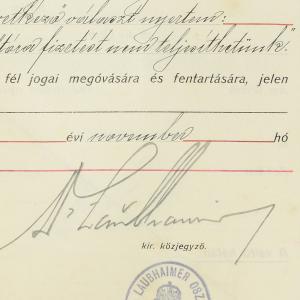 következő választ nyertem:
fizetést nem teljesíthetünk."
fél jogai megóvására és fentartására, jelen
évi november hó
Dr Laubhaimer
kir. közjegyző.
LAUBHAIMER OSZ